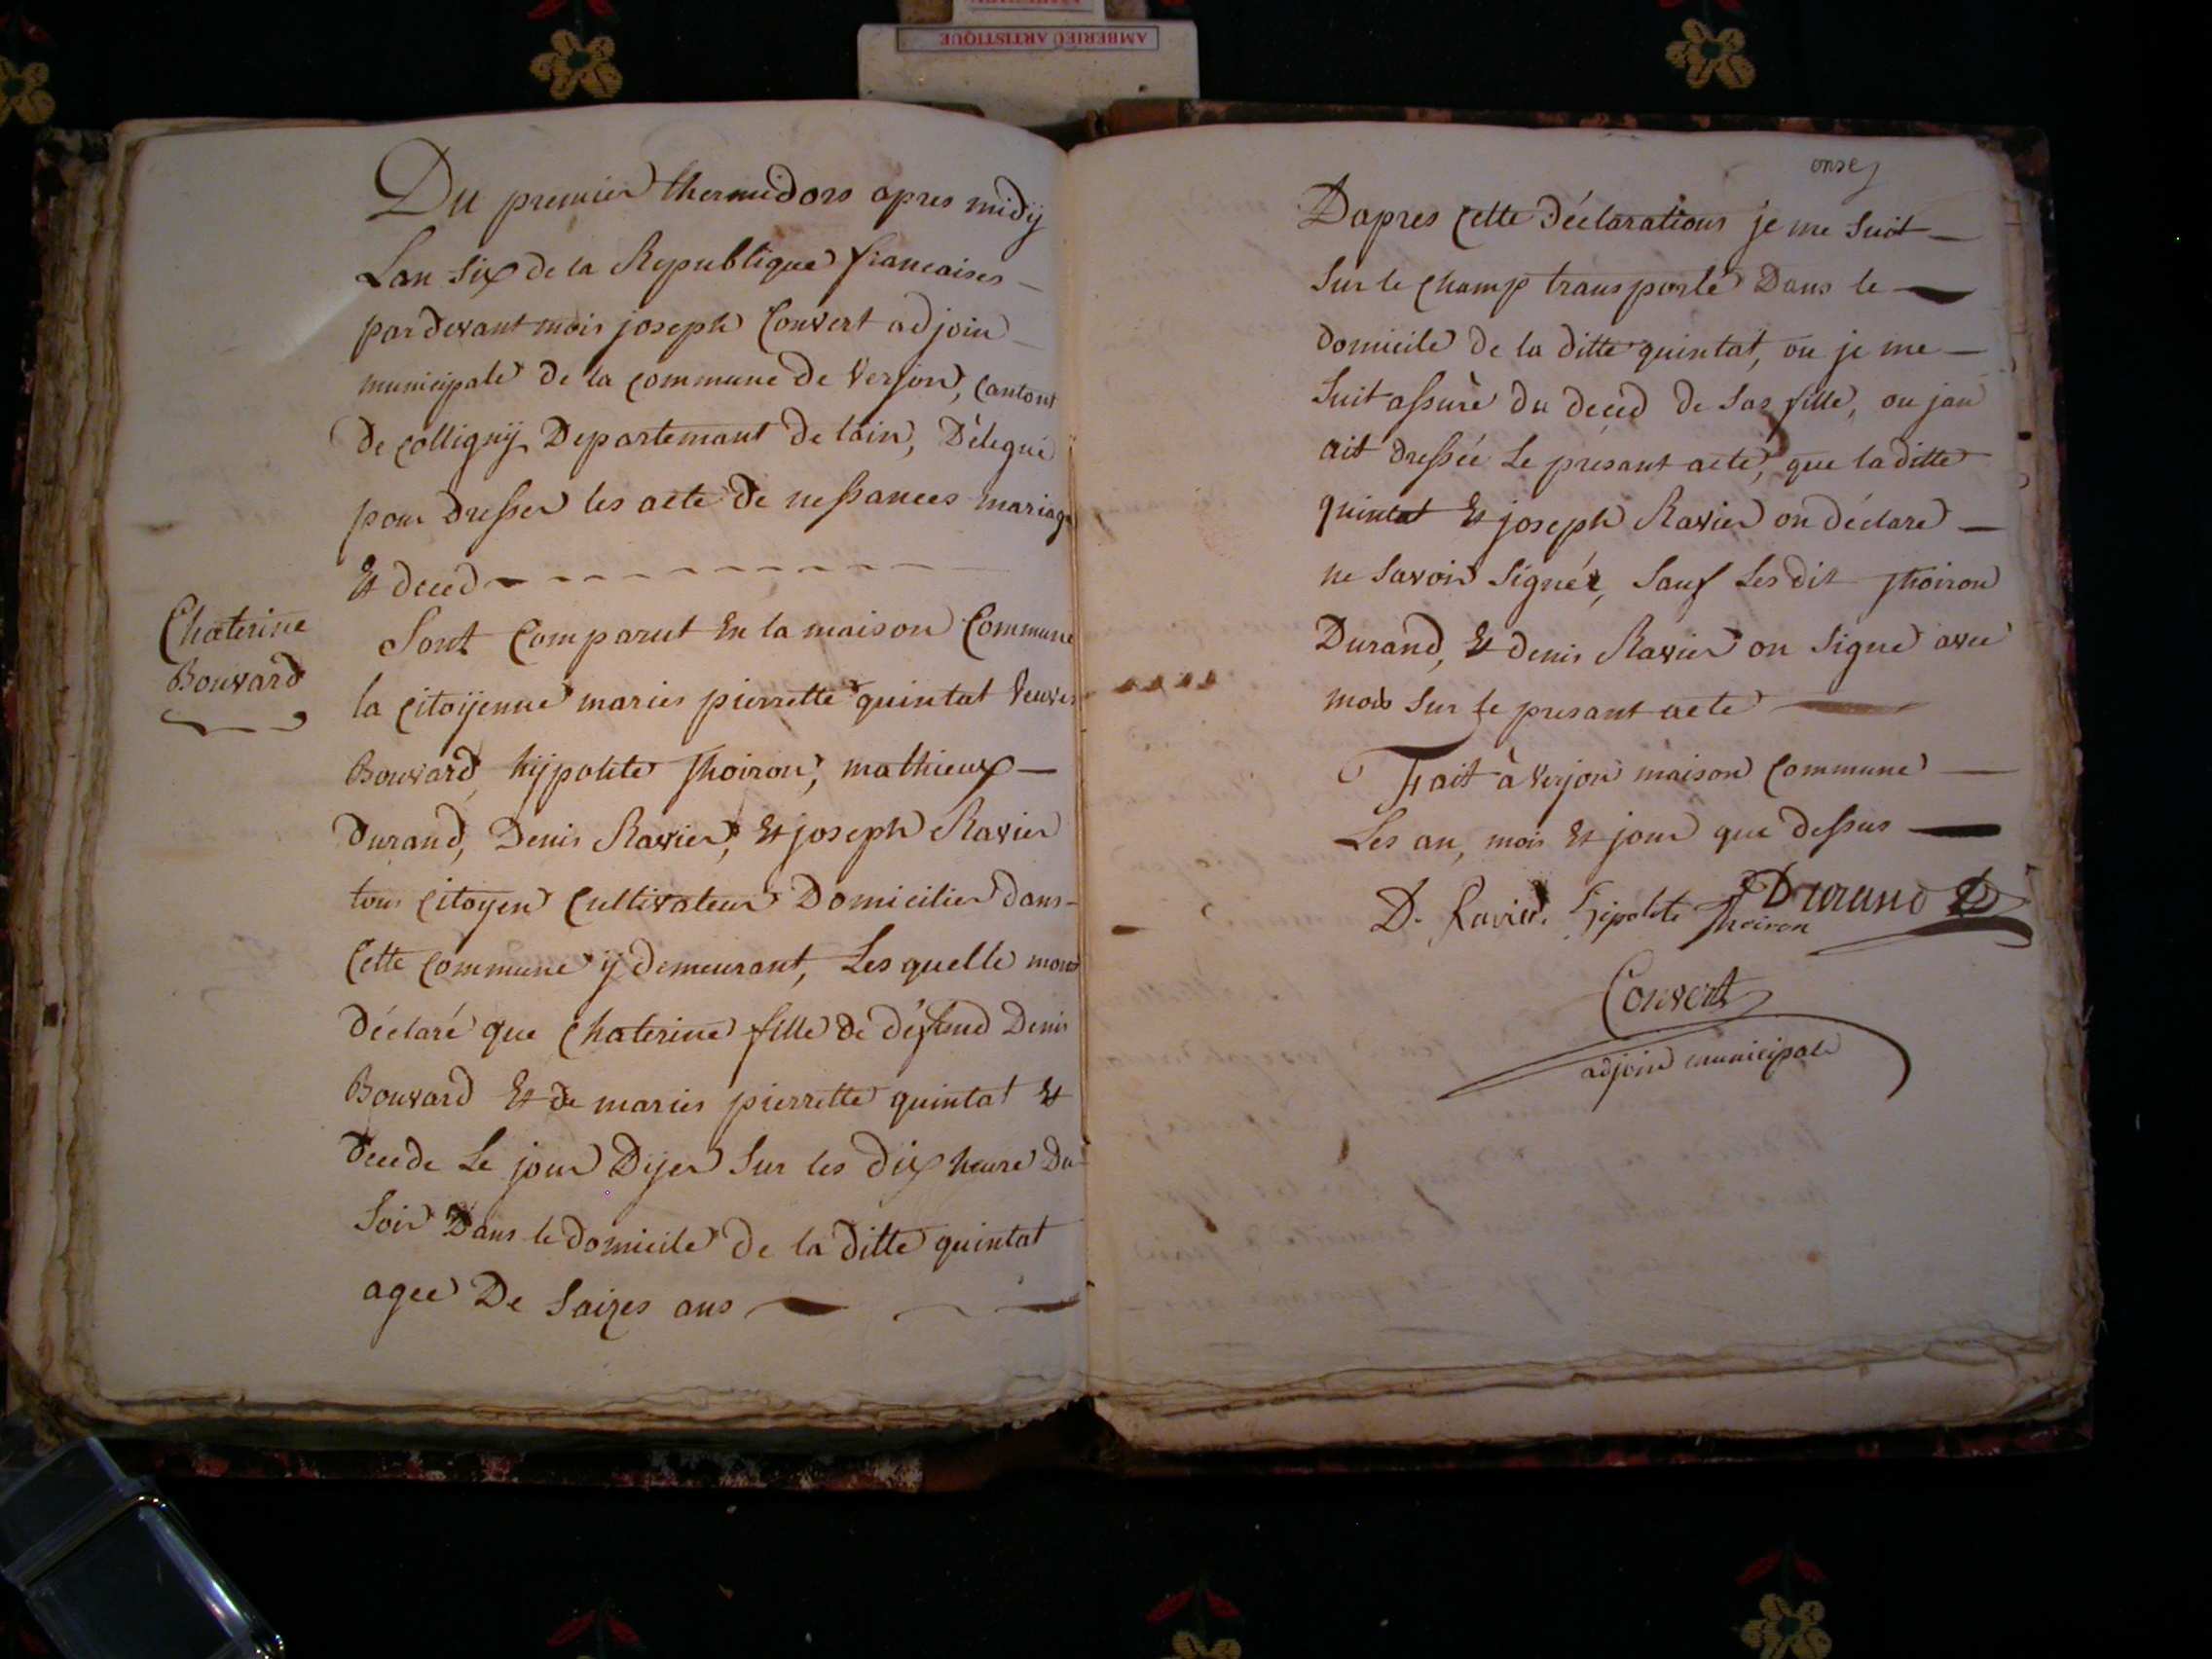 AMBERIEU ARTISTIQUE
Du premier thermidors apres midÿ
Lan Six de la Republique francaises
pardevant mois joseph Convert adjoin
municipale de la commune de Verjon, Cantont
De colligniÿ Departemant de lain, Délegué
pour dresser les acte de nessances mariage
Et deced
Chaterine
Bouvard
Sont Comparut En la maison Commune
la citoÿenne maries pierrette quintat veuves
Bouvard, hÿpolite Thoiron, mathieux
Durand, Denis Ravier, Et joseph Ravier
tous citoyen Cultivateur Domicilier dans
Cette commune ÿ demeurant, Les quelle mons
Déclaré que Chaterine fille de défund Denis
Bouvard Et de maries pierrette quintat Et
Decede Le jour Dijer Sur les dix heure Du
Soir Dans le domicile de la ditte quintat
agee De Saizes ans
onse
Dapres Cette Déclarations je me Suit
Sur le champ transporté Dans le
domicile de la ditte quintat, ou je me
Suit assuré du deced de Sas fille, ou jan
ait dressée Le présant acte, que la ditte
quintat Et joseph Ravier on déclare
ne Savoir Signér, Sauf Les dit Thoiron
Durand, Et denis Ravier on Signé avec
mois Sur Le presant acte
Fait à Verjon maison Commune
Les an, mois Et jour que dessus
D. Ravier. Hipolite Thoiron Durand
Convert
adjoin municipale